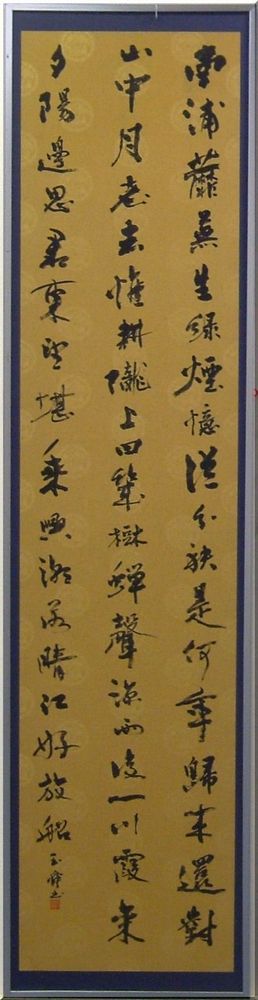 南浦蘼蕪生綠煙憶從分袂是何年歸來還對
山中月老去耕隴上田幾樹蟬聲涼雨後一川霞氣
夕陽邊思君東望堪乘興潮落晴江好放船